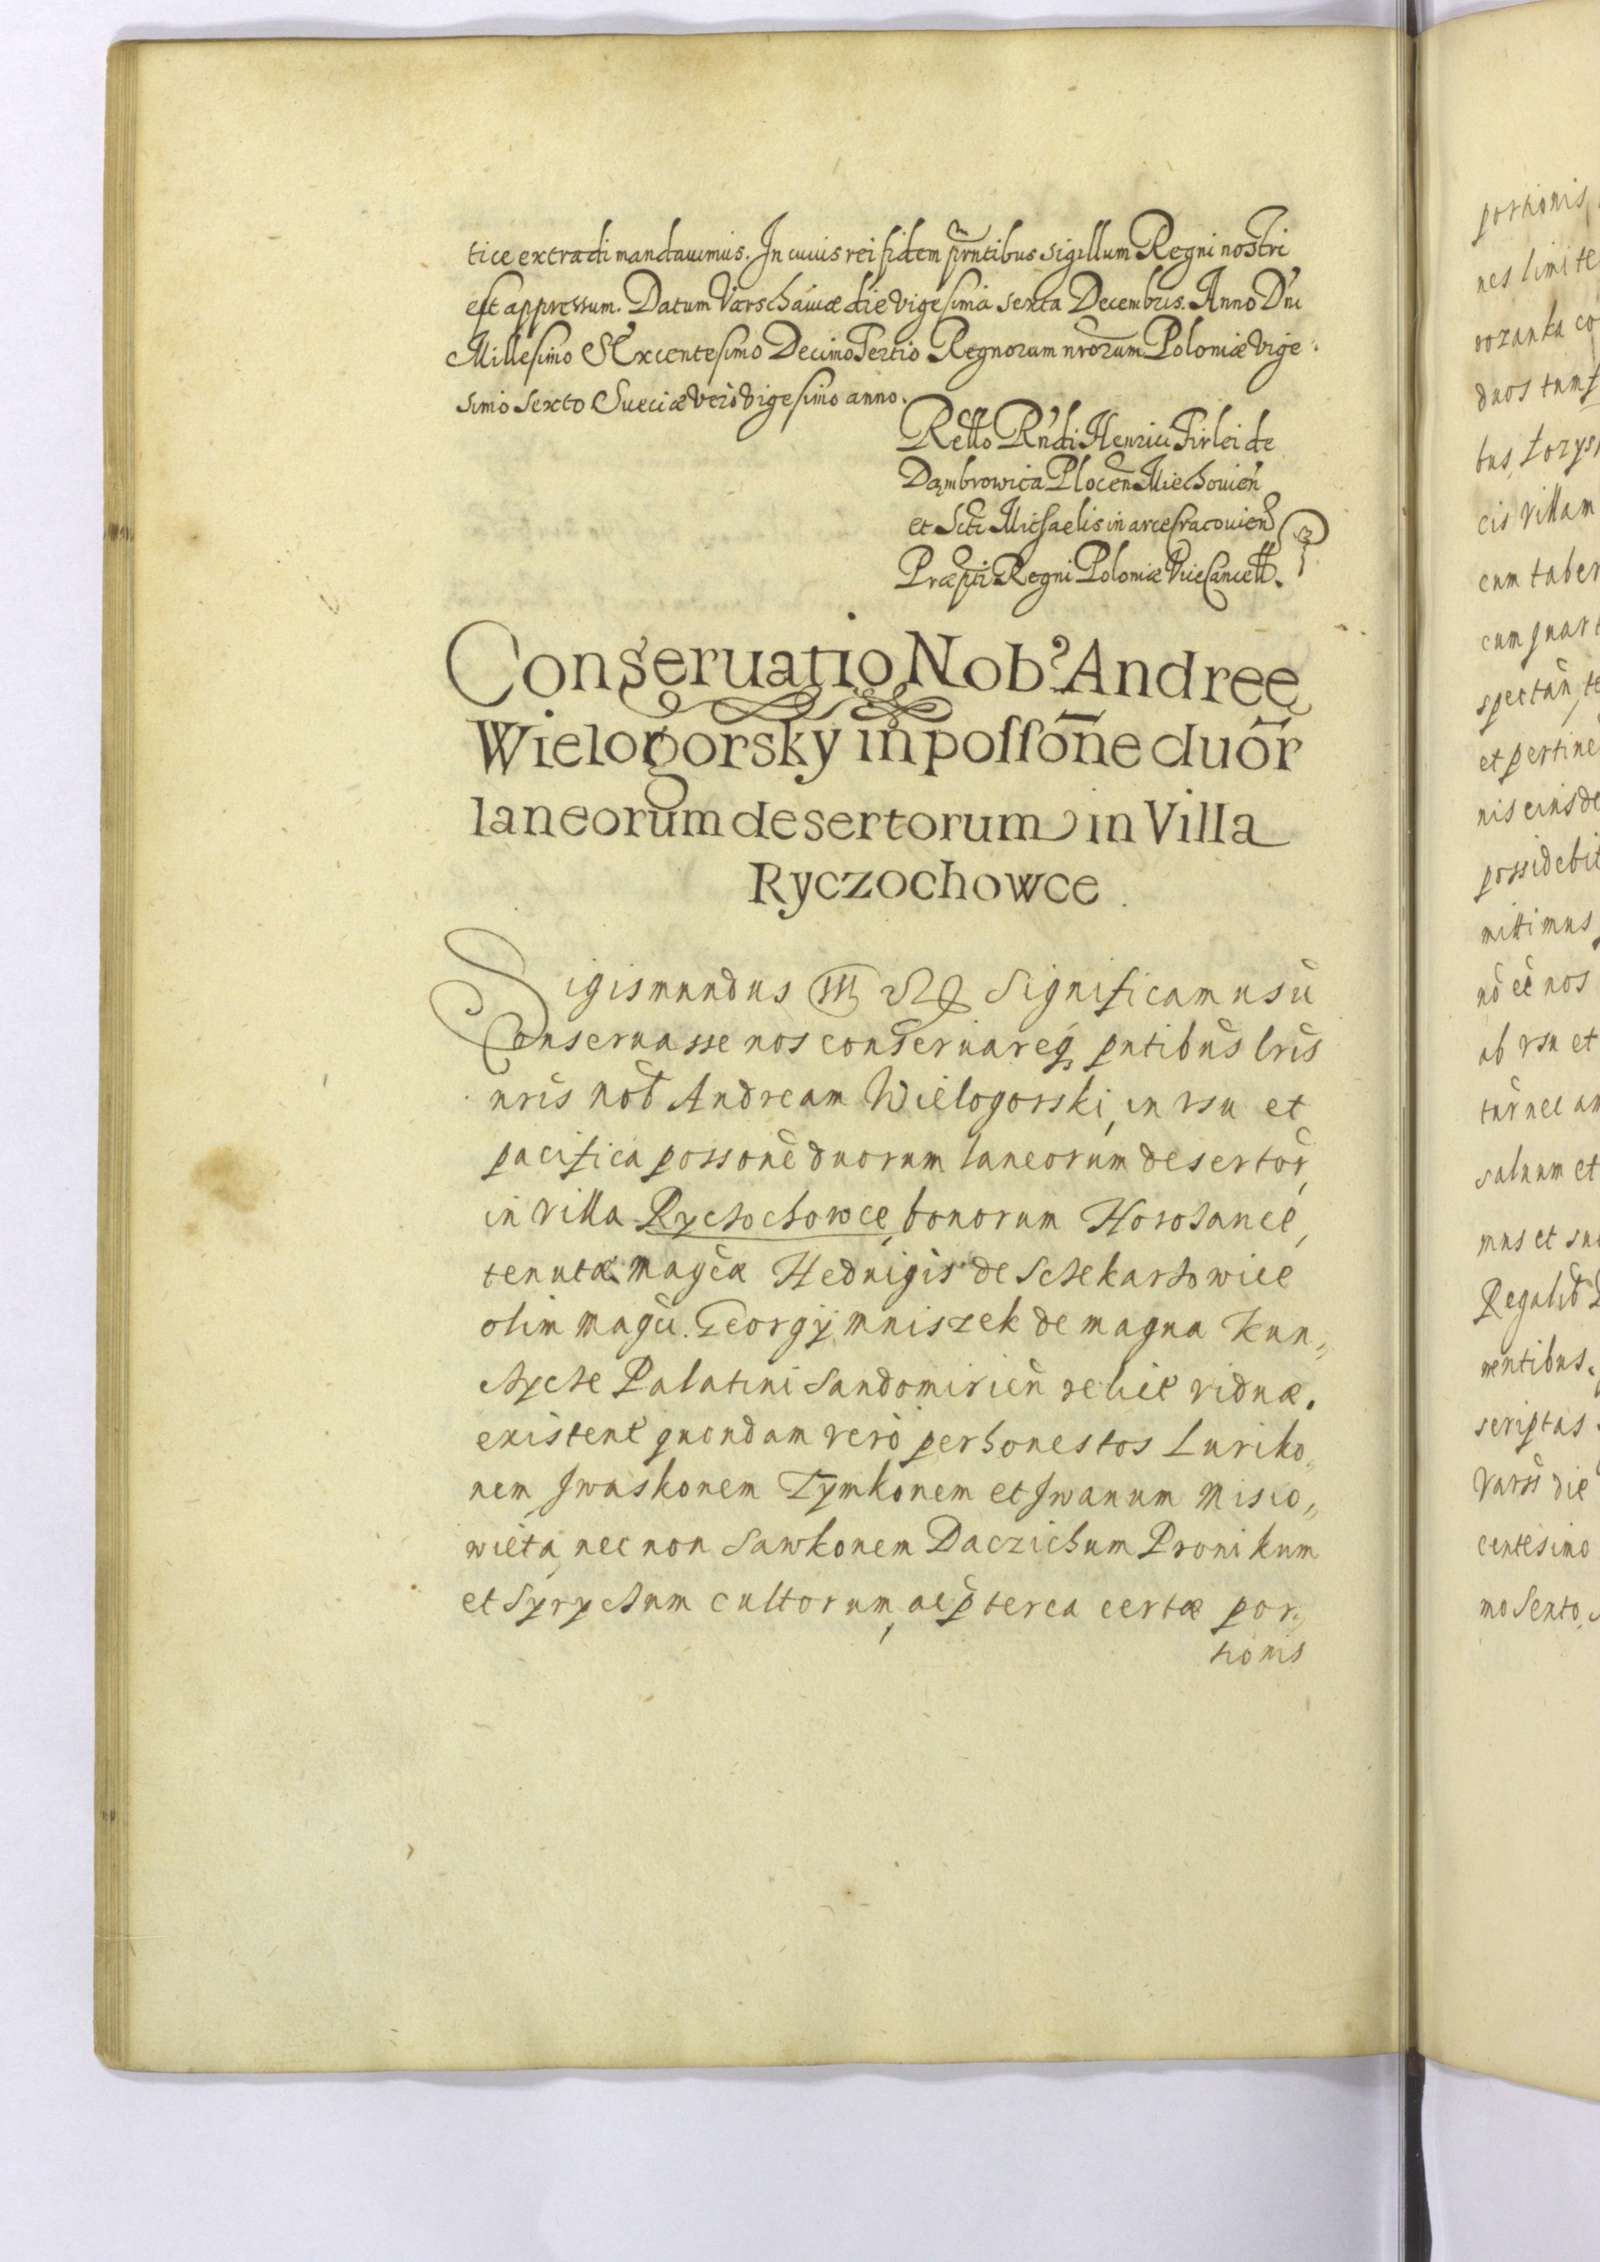 tice extradi mandauimus. In cuius rei fidem prntibus sigillum Regni nostri
est appressum. Datum Varschauiæ die vigesima sexta Decembris. Anno Dni
Millesimo Sexcentesimo Decimo Tertio Regnorum nrorum Poloniæ Vige
simo sexto Sueciæ vero vigesimo anno.
Retto Rndi Henrici Firlei de
Dąmbrowica Plocen Miechouien
et Scti Michaelis in arce Cracouien
Præpti Regni Poloniæ Vicecancell.
Conseruatio Nob. Andree
Wielogorsky in possone duor
laneorum desertorum in Villa
Ryczochowce
Sigismundus III Significamus
Conseruasse nos conseruareq pntibus lris
nris nob Andream Wielogorski, in vsu et
pacifica possone duorum laneorum desertor,
in villa Rychochowce, bonorum Horozance,
tenutæ magcæ Heduigis de
olim magci. Georgij Mniszek de magna Kun„
Palatini Sandomirien relice viduæ.
existene quondam vero per honestos Luriko„
nem Iwaskonem Tymkonem et Iwanum Misio„
wieta, nec non Sawkonem Daczichum Pronikum
et cultorum, ac pterea certæ por„
tionis
portionis
nes limite
duos tum
cis villam
cum taber
cum quart
spectan, te
et pertine
nis eiusde
possidebit
mittimus
ab vsu et
tur nec am
saluum et
mus et
Regalib
mentibus.
scriptas
Varss die
centesimo
mo Sexto,